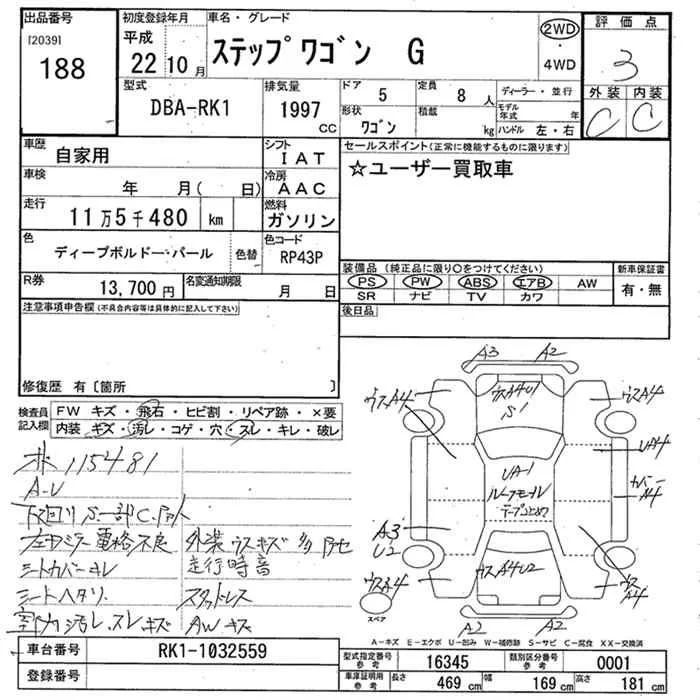 出品番号 初度登録年月 車名・グレード 評価点
[2039] 188 平成 22年 10月 ステップワゴン G 2WD・4WD 3
外装 内装
C C
型式 排気量 ドア 定員 ディーラー・並行
DBA-RK1 1997 CC 5 8人 モデル年式 年
形状 ワゴン 積載 kg ハンドル 左・右
車歴 自家用 シフト IAT セールスポイント(正常に機能するものに限ります)
車検 年 月( 日) 冷房 AAC ☆ユーザー買取車
走行 11万5千480 km 燃料 ガソリン
色 ディープボルドー・パール 色替 色コード RP43P
装備品(純正品に限り○をつけてください) 新車保証書
PS PW ABS エアB AW 有・無
SR ナビ TV カワ
R券 13,700円 名変通知期限 月 日
後日品
注意事項申告欄(不具合内容等は具体的に記入して下さい)
修復歴 有〔箇所 〕
検査員記入欄 FW キズ・飛石・ヒビ割・リペア跡・×要
内装・キズ・汚レ・コゲ・穴・スレ・キレ・破レ
115481
A-U
下廻りS一部C
左ドミラー電格不良 外装ウスキズ多
シートカバーキレ 走行時音
シートヘタリ スタッドレス
室内汚レ.スレキズ AWキズ
A3 A2
ウスA4 ウスA4U1 ウスA4
S1
UA4
UA-1 カバーA4
ルーフモール
テープ止め
A3
U2
ウスA4 ウスA4U2 ウスA4
A2 A2
スペア
A-キズ E-エクボ U-凹み W-補修跡 S-サビ C-腐食 XX-交換済
車台番号 RK1-1032559
登録番号
型式指定番号参考 16345 類別区分番号参考 0001
車庫証明用参考 長さ 469 cm 幅 169 cm 高さ 181 cm